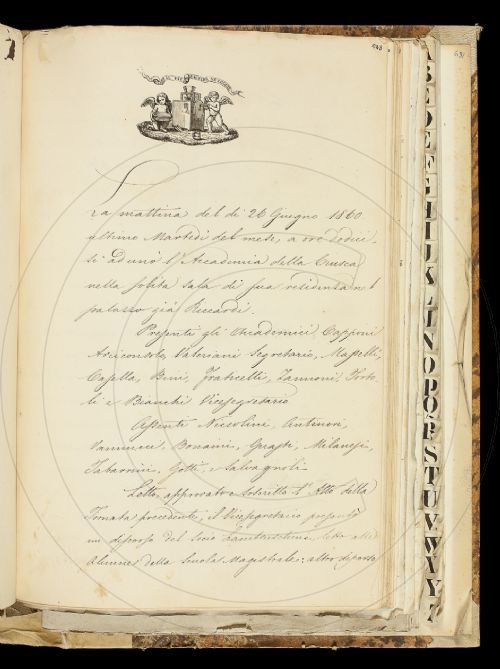 448
631
La mattina del dì 26 Giugno 1860
ultimo Martedì del mese, a ore dodici,
si adunò l'Accademia della Crusca
nella solita sala di sua residenza nel
palazzo già Riccardi.
Presenti gli Accademici Capponi
Arciconsolo, Valeriani Segretario, Maselli,
Casella, Bini, Fraticelli, Zannoni, Torto
li e Bianchi Vicesegretario
Assenti Niccolini, Antinori,
Vannucci, Bonaini, Milanesi,
Tabarrini, Gotti, e Salvagnoli.
Letto, approvato e soscritto l'Atto della
Tornata precedente, il Vicesegretario presentò
un discorso del Socio Lambruschini, letto alle
Alunne della Scuola Magistrale; altro discorso
A
B
C
D
E
F
G
H
I
J
K
L
M
N
O
P
Q
R
S
T
U
V
W
X
Y
Z